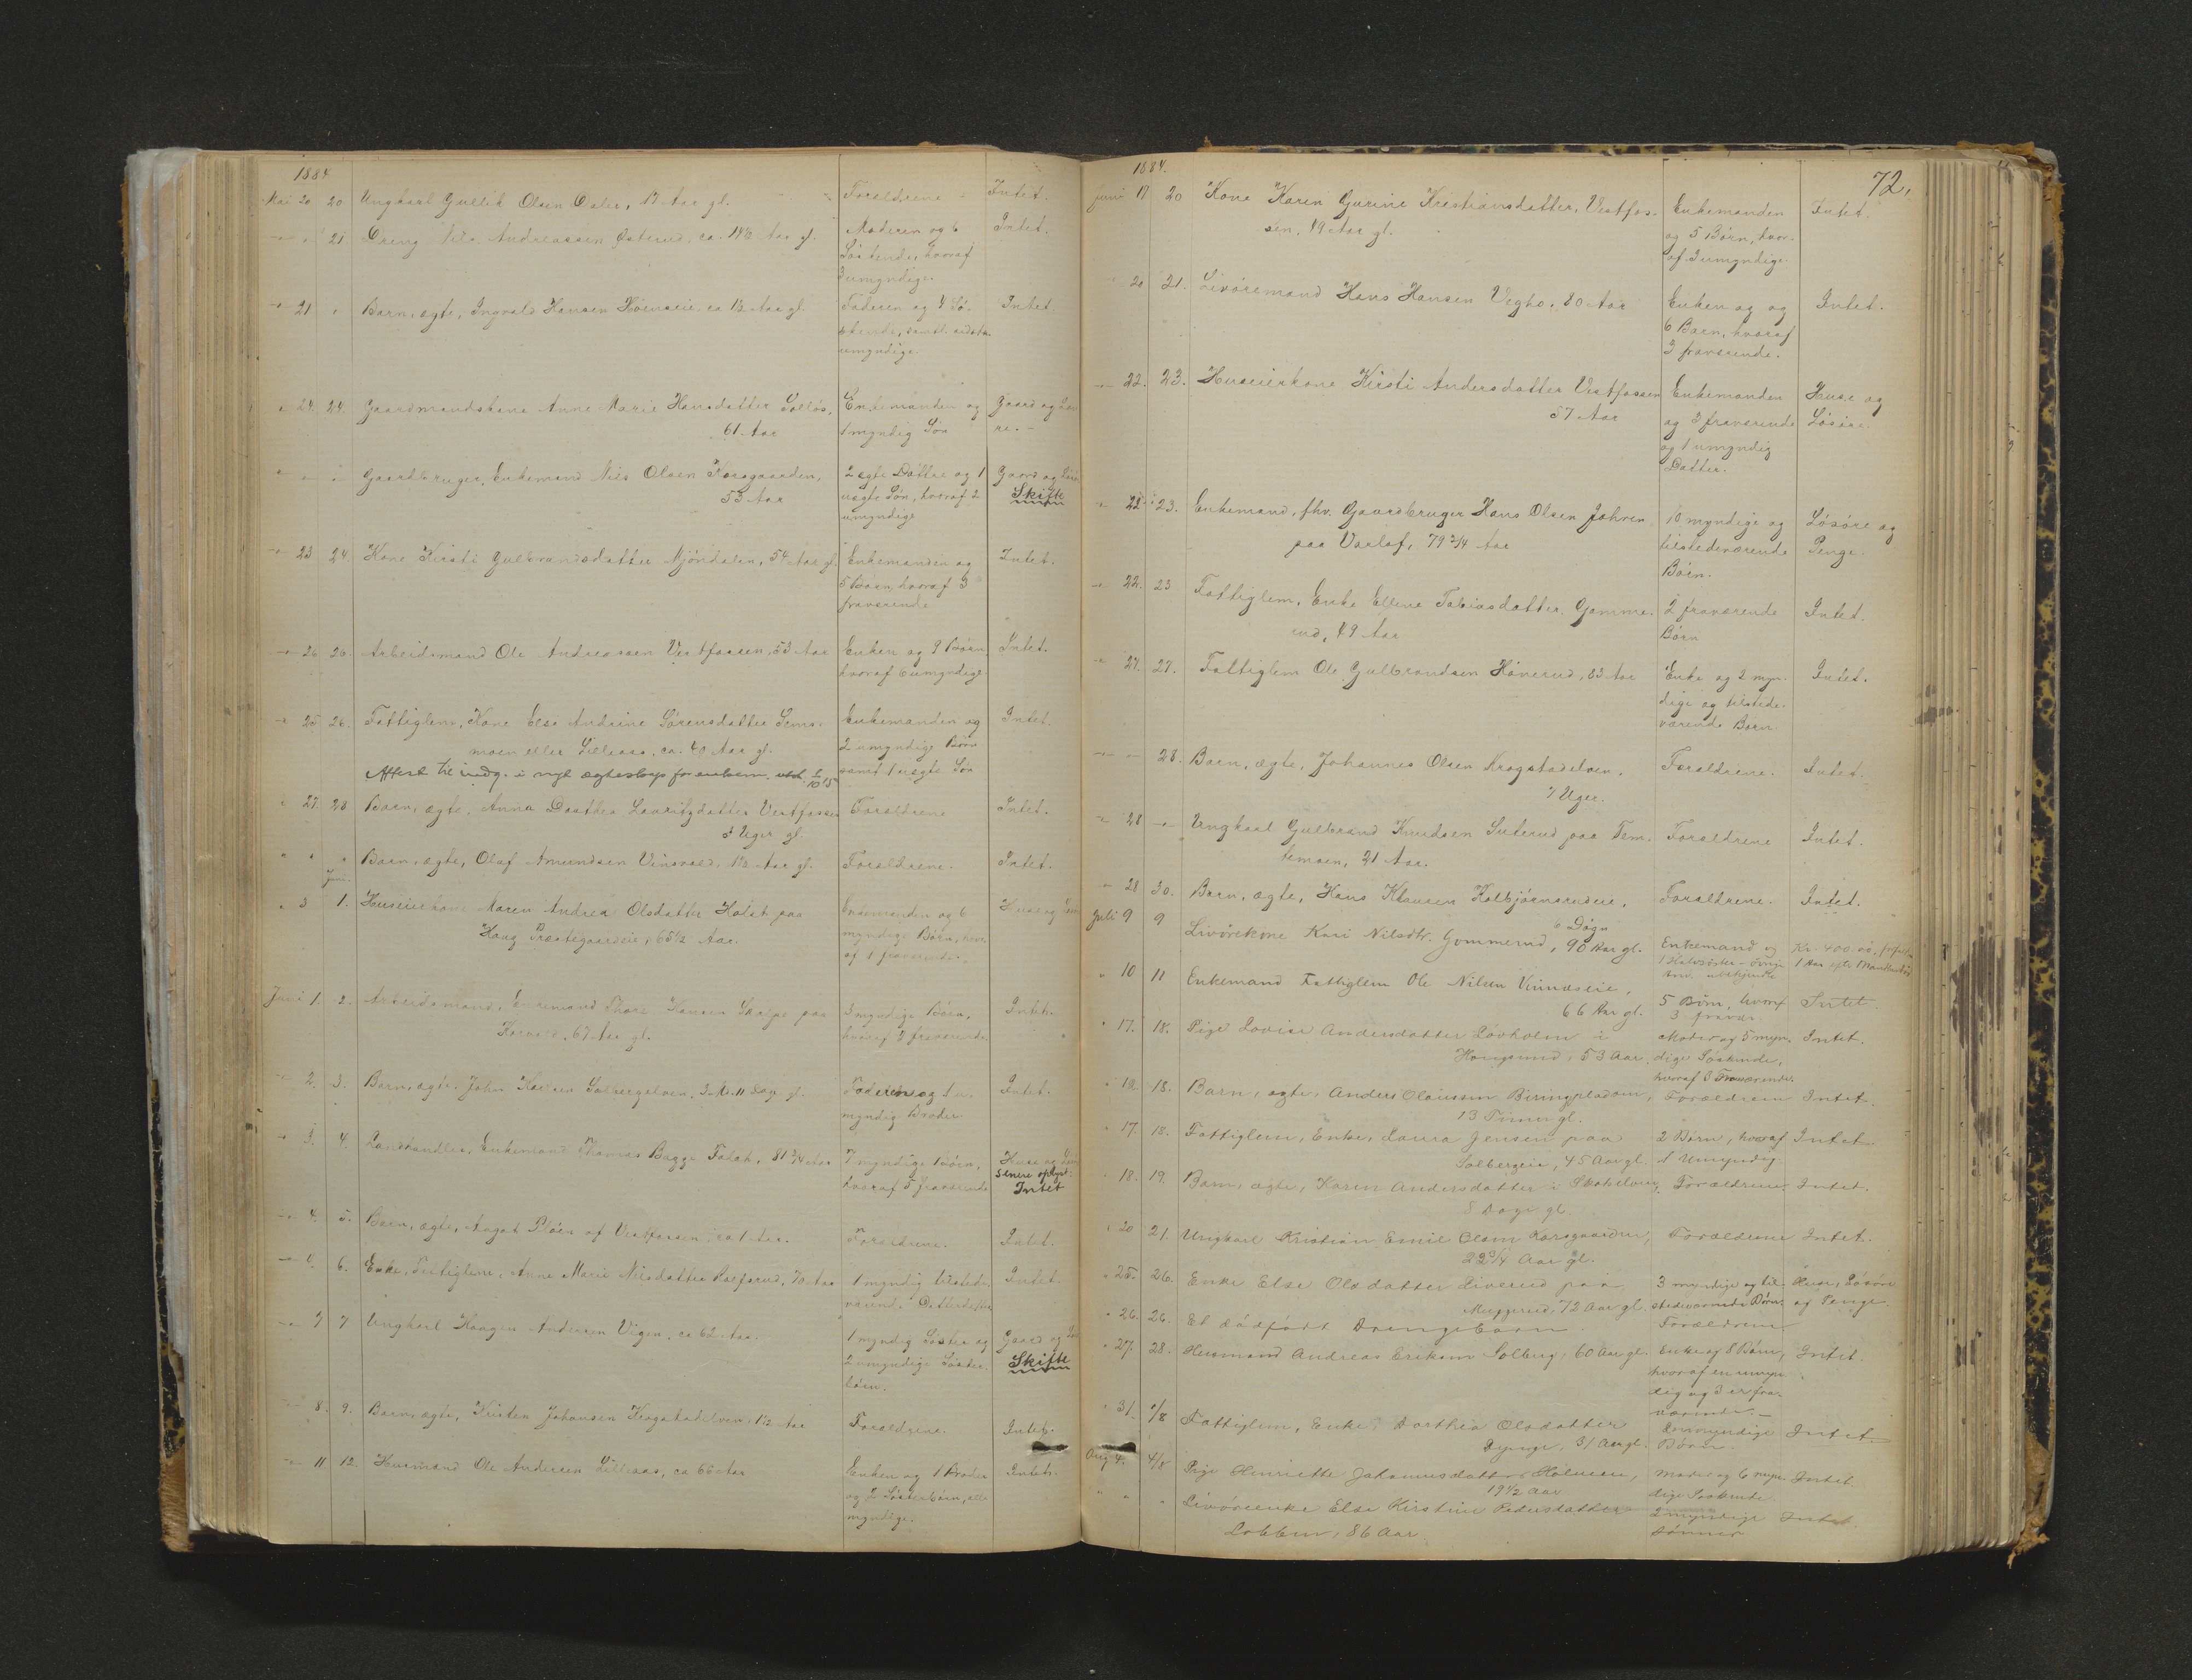 1884
Mai 20 20 Ungkarl Gullik Olsen Oster, 17 Aar gl. Forældrene Intet.
21 Dreng Nils Andreassen Østerud, ca. 14½ Aar gl. Moderen og 6 Intet.
Søskende, hvoraf
3 umyndige.
21 Barn, ægte, Ingvald Hansen ca 1½ Aar gl. Faderen og 4 Sø- Intet
skende, samtl.
umyndige.
24. 24. Gaardmandskone Anne Marie Hansdatter Solløs, Enkemanden og Gaard og
61 Aar 1 myndig Søn re.
Gaardbruger, Enkemand Nils Olsen Korsgaarden, 2 ægte Døttre og 1 Gaard og
53 Aar uægte Søn, hvoraf 2 Skifte
umyndige
23 24. Kone Kirsti Gulbrandsdatter Mjöndalen, 54 Aar gl. Enkemanden og Intet.
5 Børn, hvoraf 3
fraværende
26 26. Arbeidsmand Ole Andreassen Vestfossen, 53 Aar Enken og 9 Børn Intet.
hvoraf 6 umyndige
25 26. Fattiglem, Kone Else Andrine Sörensdatter Enkemanden og Intet.
moen eller Lilleaas, ca. 40 Aar gl. 2 umyndige Børn
Attest til indg. i nyt ægteskap for enkem. utst. samt 1 uægte Søn
27. 28 Barn, ægte, Anna Dorthea Lauritzdatter Vestfossen Forældrene Intet.
3 Uger gl.
Barn, ægte, Olaf Amundsen Vinsvold, 1½ Aar gl. Forældrene. Intet.
Juni.
3 1. Huseierkone Maren Andrea Olsdatter Holst paa Enkemanden og 6 Huse og
Haug Præstegaardeie, 65½ Aar. myndige Børn, hvor-
af 1 fraværende.
Juni 1. 2. Arbeidsmand, Enkemand Thore Hansen paa 3 myndige Børn, Intet.
67 Aar gl. hvoraf 2 fraværende
2. 3. Barn, ægte, John Karlsen Solbergelven, 3 M. 11 Dag gl. Faderen og 1 u- Intet.
myndig Broder
3. 4. Landhandler, Enkemand Thomas Bagge Falck, 81¾ Aar 7 myndige Børn, Huse og
hvoraf 5 fraværende senere oplyst:
Intet
4. 5. Barn, ægte, August Pløen af Vestfossen, ca 1 Aar. Forældrene. Intet.
4. 6. Enke, Fattiglem, Anne Marie Nilsdatter 70 Aar 1 myndig tilstede- Intet.
værend. Datterdatter
7 7 Ungkarl Haagen Andersen Vigen, ca 62 Aar. 1 myndig Søster og Gaard og
2 umyndige Søster- Skifte
børn.
8. 9. Barn, ægte, Kristen Johansen Krogstadelven, 1½ Aar Forældrene. Intet.
11 12. Husmand Ole Andersen Lilleaas, ca 66 Aar Enken og 1 Broder Intet.
og 2 Søskendebørn, alle
myndige.
1884. 72.
Juni 17 20 Kone Karen Gurine Kristiansdatter, Vestfos- Enkemanden Intet.
sen, 49 Aar gl. og 5 Børn, hvor-
af 3 umyndige
20 21. Livöremand Hans Hansen Vegbo, 80 Aar Enken og og Intet.
6 Børn, hvoraf
3 fraværende.
22. 23. Huseierkone Kirsti Andersdatter Vestfossen Enkemanden Huse og
57 Aar og 3 fraværende Løsøre.
og 1 umyndig
Datter.
22. 23. Enkemand, fhv. Gaardbruger Hans Olsen Jahren 10 myndige og Løsøre og
paa Varlof, 79¾ Aar tilstedeværende Penge.
Børn.
22. 23 Fattiglem, Enke Ellene Tobiasdatter Gomme- 2 fraværende Intet.
rud, 49 Aar Børn
27. 27. Fattiglem Ole Gulbrandsen Hønerud, 83 Aar Enke og 2 myn- Intet.
dige og tilstede-
værende Børn.
28. Barn, ægte, Johannes Olsen Krogstadelven, Forældrene. Intet.
7 Uger.
28 Ungkarl Gulbrand Knudsen Suterud paa Tem- Forældrene Intet.
temoen, 21 Aar.
28 30. Barn, ægte, Hans Klausen Kolbjørnsrudeie, Forældrene. Intet.
6 Døgn
Juli 9 9 Livörekone Kari Nilsdtr. Gommerud, 90 Aar gl. Enkemand og Kr. 400
1 Halvsøster - øvrige 1 Aar efter Mandens
arv. ubekjendte
10 11 Enkemand Fattiglem Ole Nilsen Vinnæseie, 5 Børn, hvoraf Intet.
66 Aar gl. 3 fravær.
17. 18. Pige Lovise Andersdatter Løvholm i Moder og 5 myn- Intet.
Hougsund, 53 Aar. dige Søskende,
hvoraf 3 Fraværende.
18. 18. Barn, ægte, Anders Olaussen Forældrene Intet.
13 Timer gl.
17. 18. Fattiglem, Enke, Laura Jensen paa 2 Børn, hvoraf Intet.
Solbergeie, 45 Aar gl. 1 Umyndig.
18. 19. Barn, ægte, Karen Andersdatter i Skotselven, Forældrene. Intet.
8 Dage gl.
20 21. Ungkarl Kristian Emil Olsen Korsgaarden, Forældrene Intet.
22¾ Aar gl.
25. 26. Enke Else Olsdatter Liverud paa 3 myndige og til- Huse, Løsøre
Muggerud, 72 Aar gl. stedeværende Børn. og Penge.
26. 26. Et dødfødt Drengebarn Forældrene
27. 28. Husmand Andreas Eriksen Solberg, 60 Aar gl. Enke og 8 Børn, Intet.
hvoraf en umyn-
dig og 3 er fra-
værende.
31. 1/8 Fattiglem, Enke, Dorthea Olsdatter umyndige Intet.
31 Aar gl. Børn.
Aug 4. 4/8 Pige Henriette Johannesdatter Moder og 6 myn- Intet.
19½ Aar dige Søskende
Livøreenke Else Kirstine Pedersdatter 2 myndige Intet.
Lobben, 86 Aar. Sønner